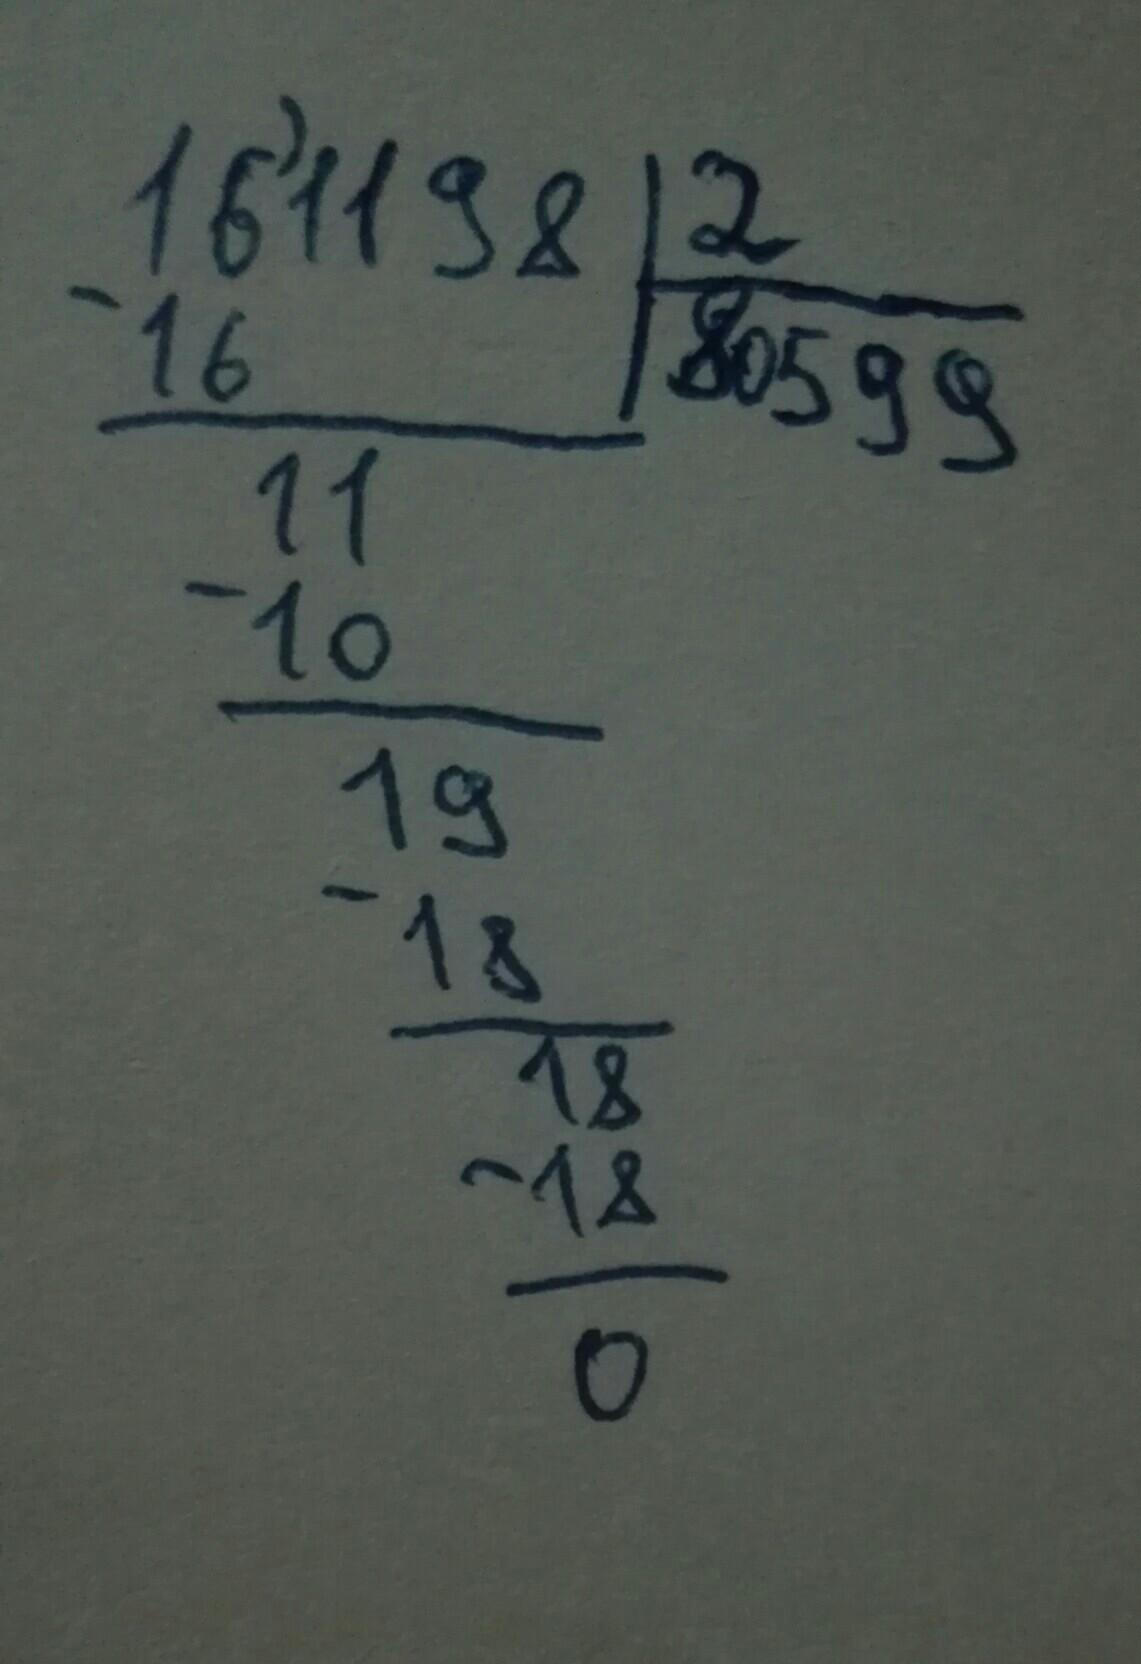 16'1198 2
-16 80599
11
-10
19
-18
18
-18
0